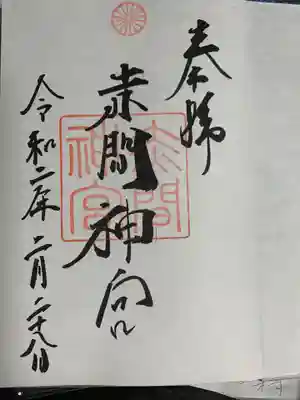 奉拝
赤間神宮
赤間
神宮
令和二年二月二十八日